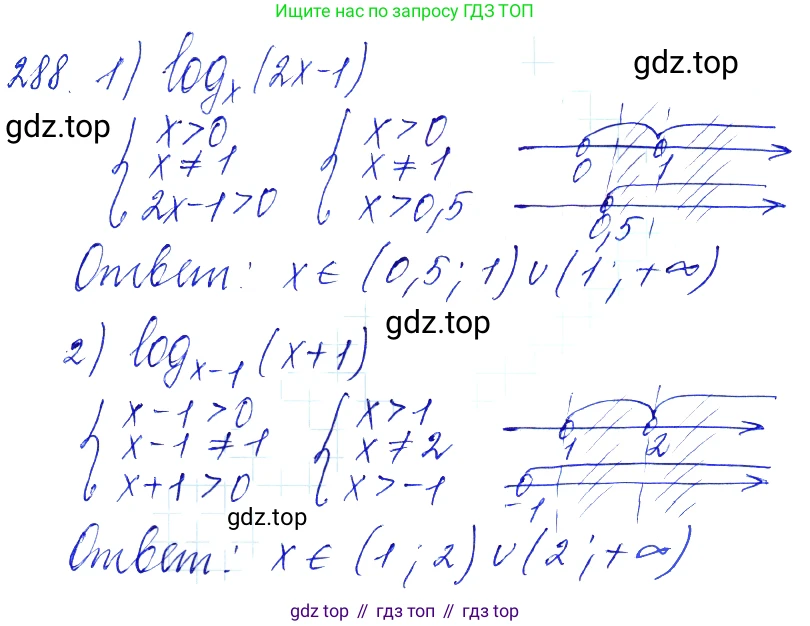 Ищите нас по запросу ГДЗ ТОП
288. 1) log_x (2x-1)
gdz.top
gdz.top
{ x>0 { x>0
x≠1 x≠1
2x-1>0 x>0,5
0 1
0,5
Ответ: x ∈ (0,5; 1) ∪ (1; +∞)
gdz.top
2) log_{x-1} (x+1)
{ x-1>0 { x>1
x-1≠1 x≠2
x+1>0 x>-1
1 2
-1
gdz.top
Ответ: x ∈ (1; 2) ∪ (2; +∞)
gdz top // гдз топ // gdz top // гдз топ